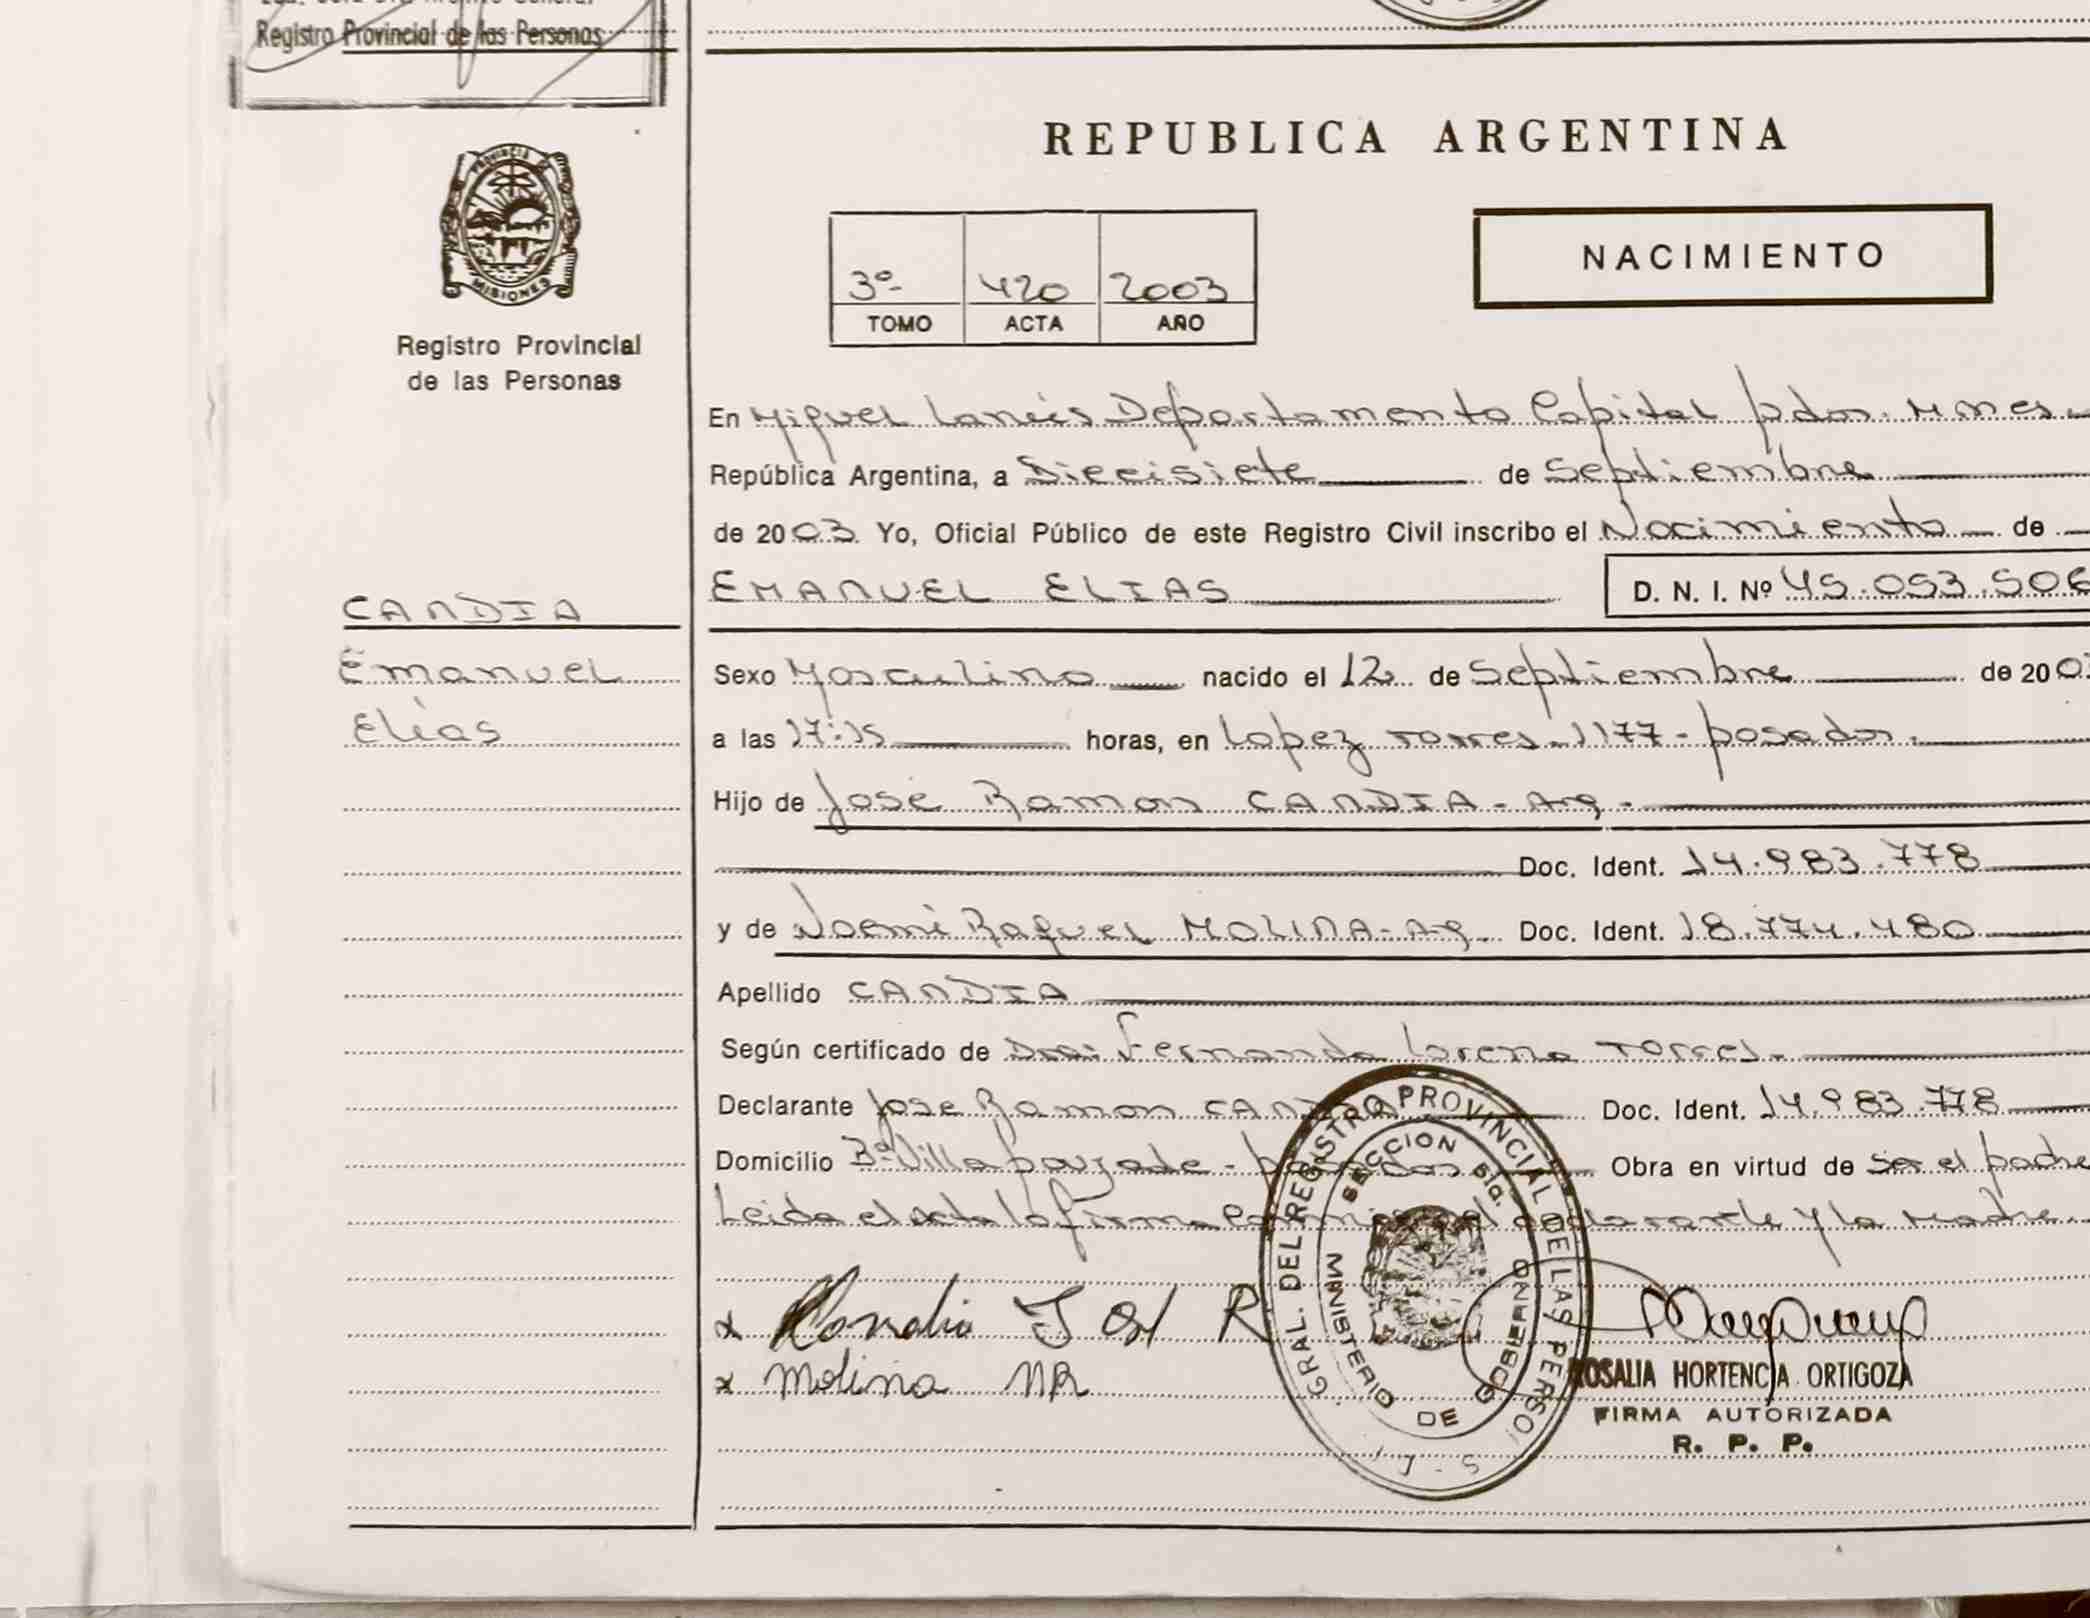 Registro Provincial de las Personas
REPUBLICA ARGENTINA
NACIMIENTO
3º 420 2003
TOMO ACTA AÑO
PROVINCIA DE
MISIONES
Registro Provincial
de las Personas
En Miguel Lanús Departamento Capital pdas. Mnes.
República Argentina, a Diecisiete de Septiembre
de 2003 Yo, Oficial Público de este Registro Civil inscribo el Nacimiento de
EMANUEL ELIAS D. N. I. Nº 45.053.506
CANDIA
Emanuel
Elias
Sexo Masculino nacido el 12 de Septiembre de 200
a las 17:15 horas, en Lopez Torres 1177 - posadas.
Hijo de Jose Ramon CANDIA - Arg -
Doc. Ident. 14.983.778
y de Noemi Raquel MOLINA - Arg. Doc. Ident. 18.774.480
Apellido CANDIA
Según certificado de Dra: Fernanda Lorena Torres.
Declarante Jose Ramon CANDIA Doc. Ident. 14.983.778
Domicilio Bº Villa - posadas Obra en virtud de ser el padre
Leida el acta la firma el declarante y la Madre.
x Candia José R
x Molina NR
GRAL. DEL REGISTRO PROVINCIAL DE LAS PERSO
SECCION 5ta.
MINISTERIO DE GOBIERNO
ROSALIA HORTENCIA ORTIGOZA
FIRMA AUTORIZADA
R. P. P.